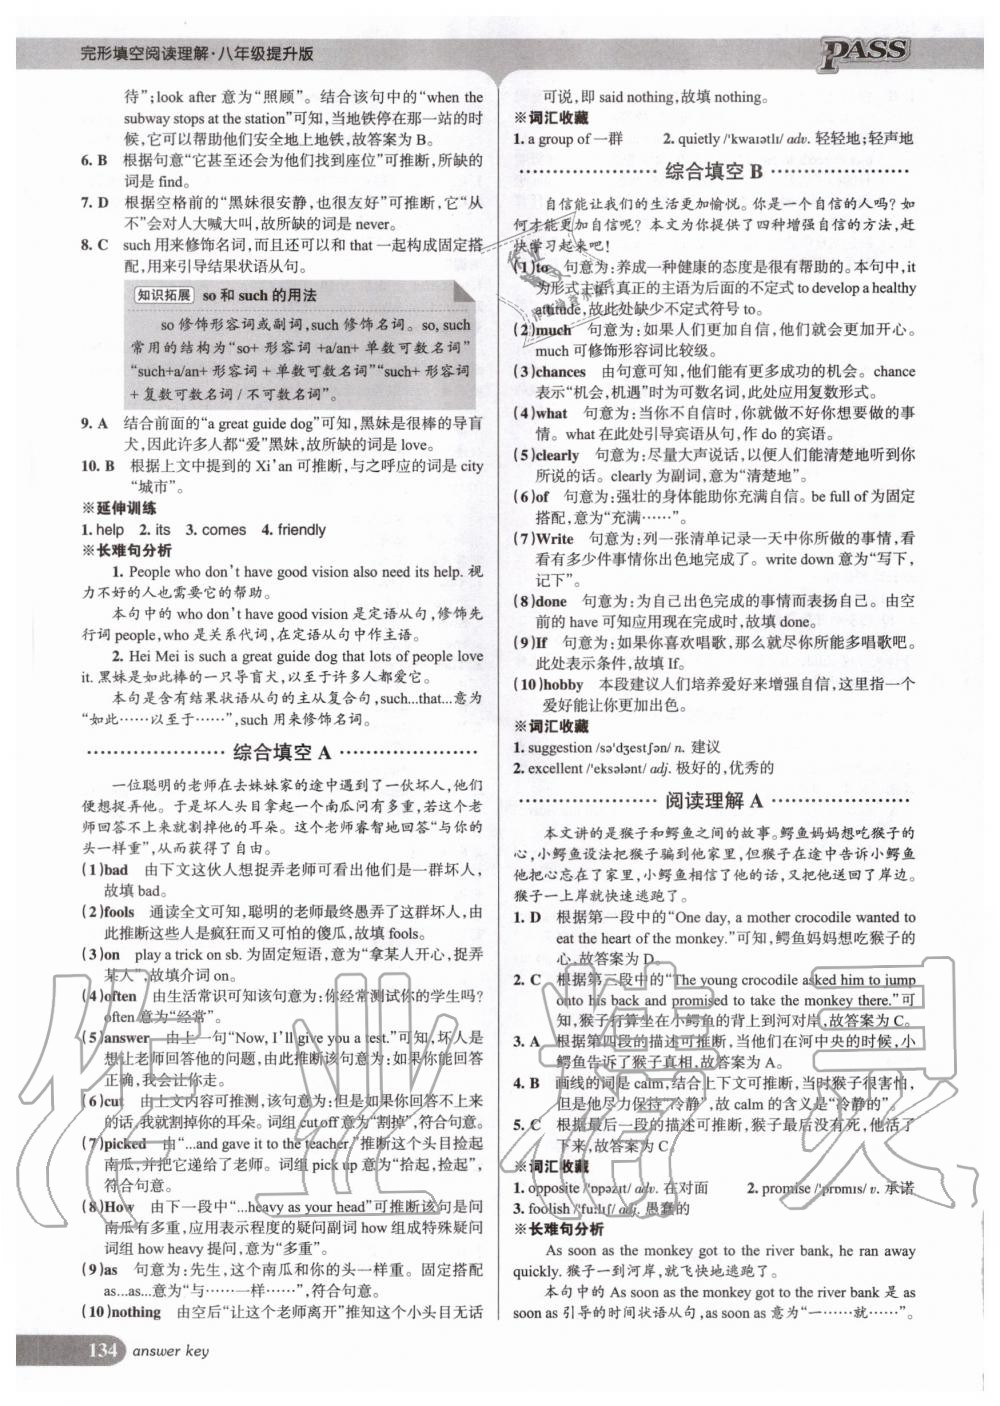 完形填空阅读理解·八年级提升版
PASS
待”;look after 意为“照顾”。结合该句中的“when the
subway stops at the station”可知,当地铁停在那一站的时
候,它可以帮助他们安全地上地铁,故答案为 B。
6. B 根据句意“它甚至还会为他们找到座位”可推断,所缺的
词是 find。
7. D 根据空格前的“黑妹很安静,也很友好”可推断,它“从
不”会对人大喊大叫,故所缺的词是 never。
8. C such 用来修饰名词,而且还可以和 that 一起构成固定搭
配,用来引导结果状语从句。
知识拓展 so 和 such 的用法
so 修饰形容词或副词,such 修饰名词。so, such
常用的结构为“so+ 形容词 +a/an+ 单数可数名词”
“such+a/an+ 形容词 + 单数可数名词”“such+ 形容词
+ 复数可数名词 / 不可数名词”。
9. A 结合前面的“a great guide dog”可知,黑妹是很棒的导盲
犬,因此许多人都“爱”黑妹,故所缺的词是 love。
10. B 根据上文中提到的 Xi’an 可推断,与之呼应的词是 city
“城市”。
※延伸训练
1. help 2. its 3. comes 4. friendly
※长难句分析
1. People who don’t have good vision also need its help. 视
力不好的人也需要它的帮助。
本句中的 who don’t have good vision 是定语从句,修饰先
行词 people,who 是关系代词,在定语从句中作主语。
2. Hei Mei is such a great guide dog that lots of people love
it. 黑妹是如此棒的一只导盲犬,以至于许多人都爱它。
本句是含有结果状语从句的主从复合句,such...that...意为
“如此……以至于……”,such 用来修饰名词。
综合填空 A
一位聪明的老师在去妹妹家的途中遇到了一伙坏人,他们
便想捉弄他。于是坏人头目拿起一个南瓜问有多重,若这个老
师回答不上来就割掉他的耳朵。这个老师睿智地回答“与你的
头一样重”,从而获得了自由。
(1)bad 由下文这伙人想捉弄老师可看出他们是一群坏人,
故填 bad。
(2)fools 通读全文可知,聪明的老师最终愚弄了这群坏人,由
此推断这些人是疯狂而又可怕的傻瓜,故填 fools。
(3)on play a trick on sb. 为固定短语,意为“拿某人开心,捉弄
某人”,故填介词 on。
(4)often 由生活常识可知该句意为:你经常测试你的学生吗?
often 意为“经常”。
(5)answer 由上一句“Now, I’ll give you a test.”可知,坏人是
想让老师回答他的问题,由此推断该句意为:如果你能回答
正确,我会让你走。
(6)cut 由上文内容可推测,该句意为:但是如果你回答不上来
的话,我就割掉你的耳朵。词组 cut off 意为“割掉”,符合句意。
(7)picked 由“...and gave it to the teacher.”推断这个头目捡起
南瓜,并把它递给了老师。词组 pick up 意为“拾起,捡起”,
符合句意。
(8)How 由下一段中“...heavy as your head”可推断该句是问
南瓜有多重,应用表示程度的疑问副词 how 组成特殊疑问
词组 how heavy 提问,意为“多重”。
(9)as 句意为:先生,这个南瓜和你的头一样重。固定搭配
as...as...意为“与……一样……”,符合句意。
(10)nothing 由空后“让这个老师离开”推知这个小头目无话
可说,即 said nothing,故填 nothing。
※词汇收藏
1. a group of 一群 2. quietly /'kwaɪətlɪ/ adv. 轻轻地;轻声地
综合填空 B
自信能让我们的生活更加愉悦。你是一个自信的人吗?如
何才能更加自信呢?本文为你提供了四种增强自信的方法,赶
快学习起来吧!
(1)to 句意为:养成一种健康的态度是很有帮助的。本句中,it
为形式主语,真正的主语为后面的不定式 to develop a healthy
attitude,故此处缺少不定式符号 to。
(2)much 句意为:如果人们更加自信,他们就会更加开心。
much 可修饰形容词比较级。
(3)chances 由句意可知,他们能有更多成功的机会。chance
表示“机会,机遇”时为可数名词,此处应用复数形式。
(4)what 句意为:当你不自信时,你就做不好你想要做的事
情。what 在此处引导宾语从句,作 do 的宾语。
(5)clearly 句意为:尽量大声说话,以便人们能清楚地听到你
所说的话。clearly 为副词,意为“清楚地”。
(6)of 句意为:强壮的身体能助你充满自信。be full of 为固定
搭配,意为“充满……”。
(7)Write 句意为:列一张清单记录一天中你所做的事情,看
看有多少件事情你出色地完成了。write down 意为“写下,
记下”。
(8)done 句意为:为自己出色完成的事情而表扬自己。由空
前的 have 可知应用现在完成时,故填 done。
(9)If 句意为:如果你喜欢唱歌,那么就尽你所能多唱歌吧。
此处表示条件,故填 If。
(10)hobby 本段建议人们培养爱好来增强自信,这里指一个
爱好能让你更加出色。
※词汇收藏
1. suggestion /sə'dʒestʃən/ n. 建议
2. excellent /'eksələnt/ adj. 极好的,优秀的
阅读理解 A
本文讲的是猴子和鳄鱼之间的故事。鳄鱼妈妈想吃猴子的
心,小鳄鱼设法把猴子骗到他家里,但猴子在途中告诉小鳄鱼
他把心忘在了家里,小鳄鱼相信了他的话,又把他送回了岸边。
猴子一上岸就快速逃跑了。
1. D 根据第一段中的“One day, a mother crocodile wanted to
eat the heart of the monkey.”可知,鳄鱼妈妈想吃猴子的
心,故答案为 D。
2. C 根据第三段中的“The young crocodile asked him to jump
onto his back and promised to take the monkey there.”可
知,猴子打算坐在小鳄鱼的背上到河对岸,故答案为 C。
3. A 根据第四段的描述可推断,当他们在河中央的时候,小
鳄鱼告诉了猴子真相,故答案为 A。
4. B 画线的词是 calm,结合上下文可推断,当时猴子很害怕,
但是他尽力保持“冷静”,故 calm 的含义是“冷静的”。
5. C 根据最后一段的描述可推断,猴子最后没有死,他活了
下来,故答案为 C。
※词汇收藏
1. opposite /'ɒpəzɪt/ adv. 在对面 2. promise /'prɒmɪs/ v. 承诺
3. foolish /'fuːlɪʃ/ adj. 愚蠢的
※长难句分析
As soon as the monkey got to the river bank, he ran away
quickly. 猴子一到河岸,就飞快地逃跑了。
本句中的 As soon as the monkey got to the river bank 是 as
soon as 引导的时间状语从句,as soon as 意为“一……就……”。
134 answer key
作业精灵